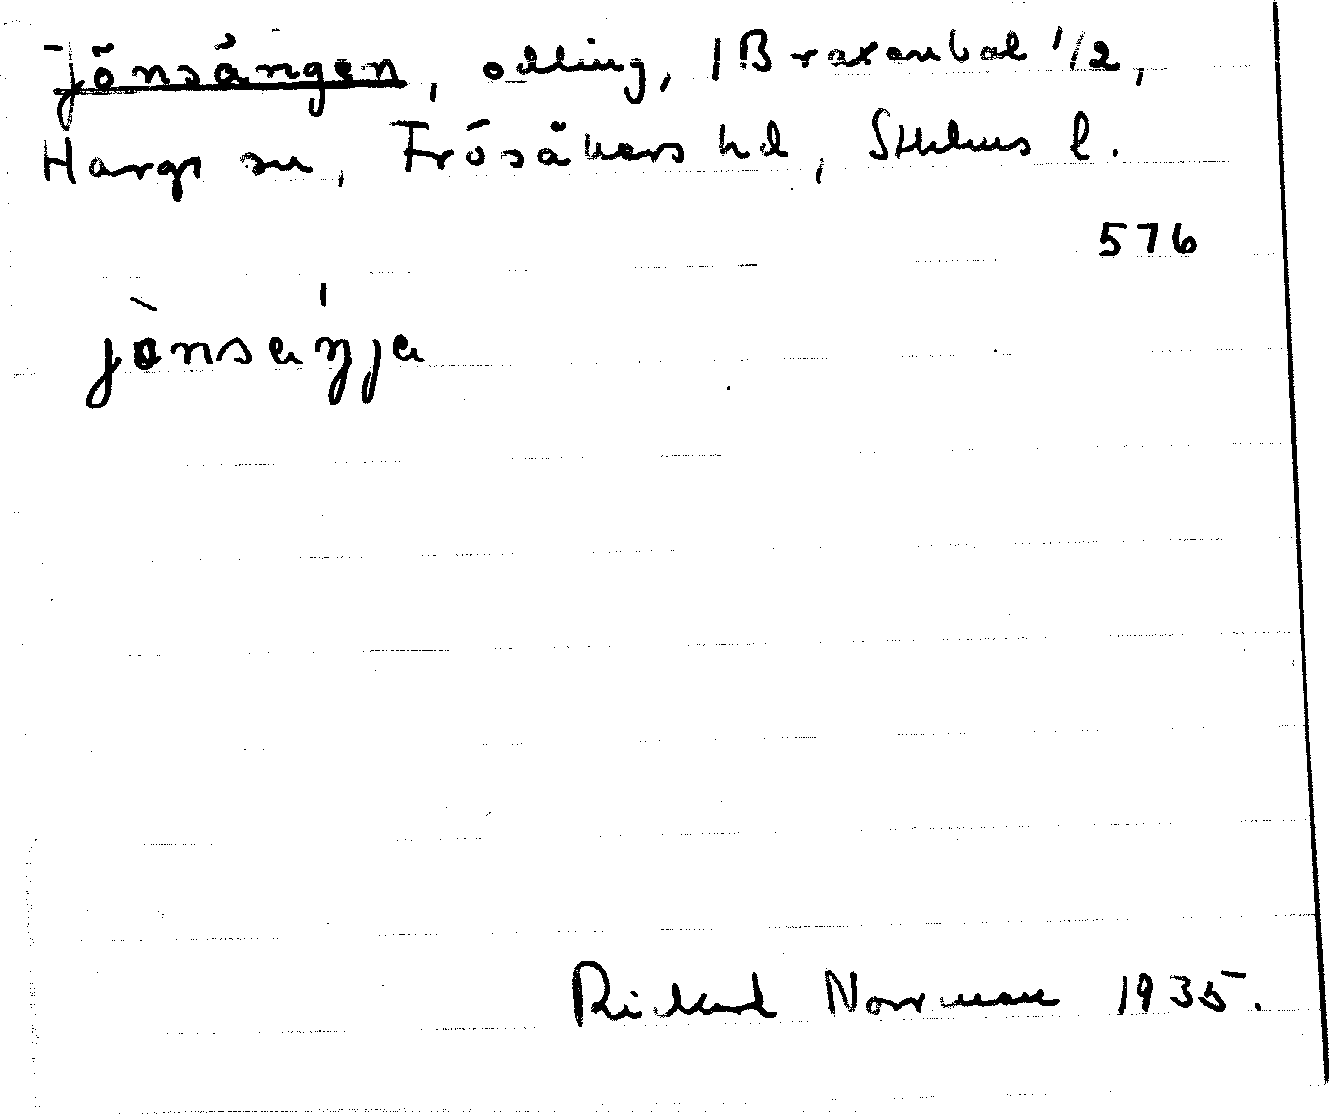 Jönsängen, odling, 1 Braxenbol 1/2,
Hargs sn, Frösåkers hd, Sthlms l.
576
jònsaŋ́ja
Rickard Norrman 1935.